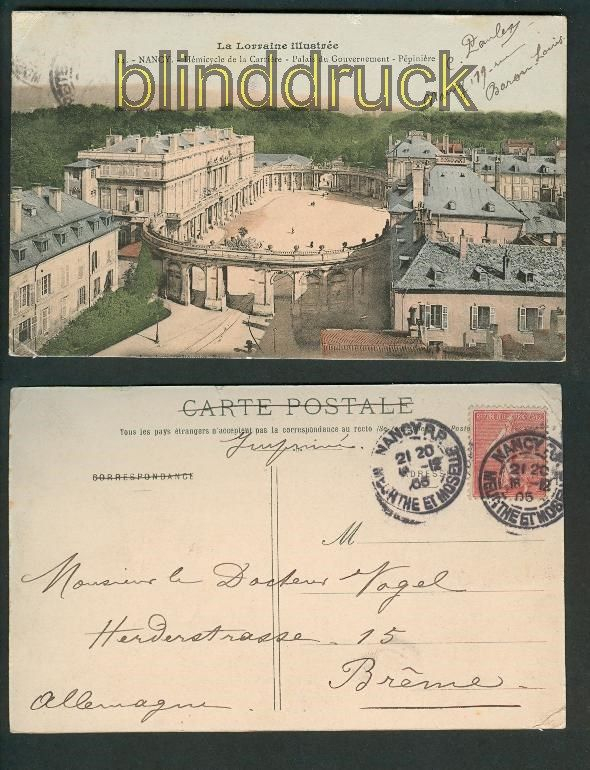 La Lorraine illustrée
NANCY. - Hémicycle de la Carrière - Palais du Gouvernement - Pépinière
blinddruck
Baron Louis
CARTE POSTALE
Tous les pays étrangers n'acceptent pas la correspondance au recto
Imprimé.
CORRESPONDANCE
NANCY R.P.
21 20
05
MEURTHE ET MOSELLE
NANCY R.P.
21 20
05
MEURTHE ET MOSELLE
M
Monsieur le Docteur Vogel
Herderstrasse. 15
Brême
Allemagne